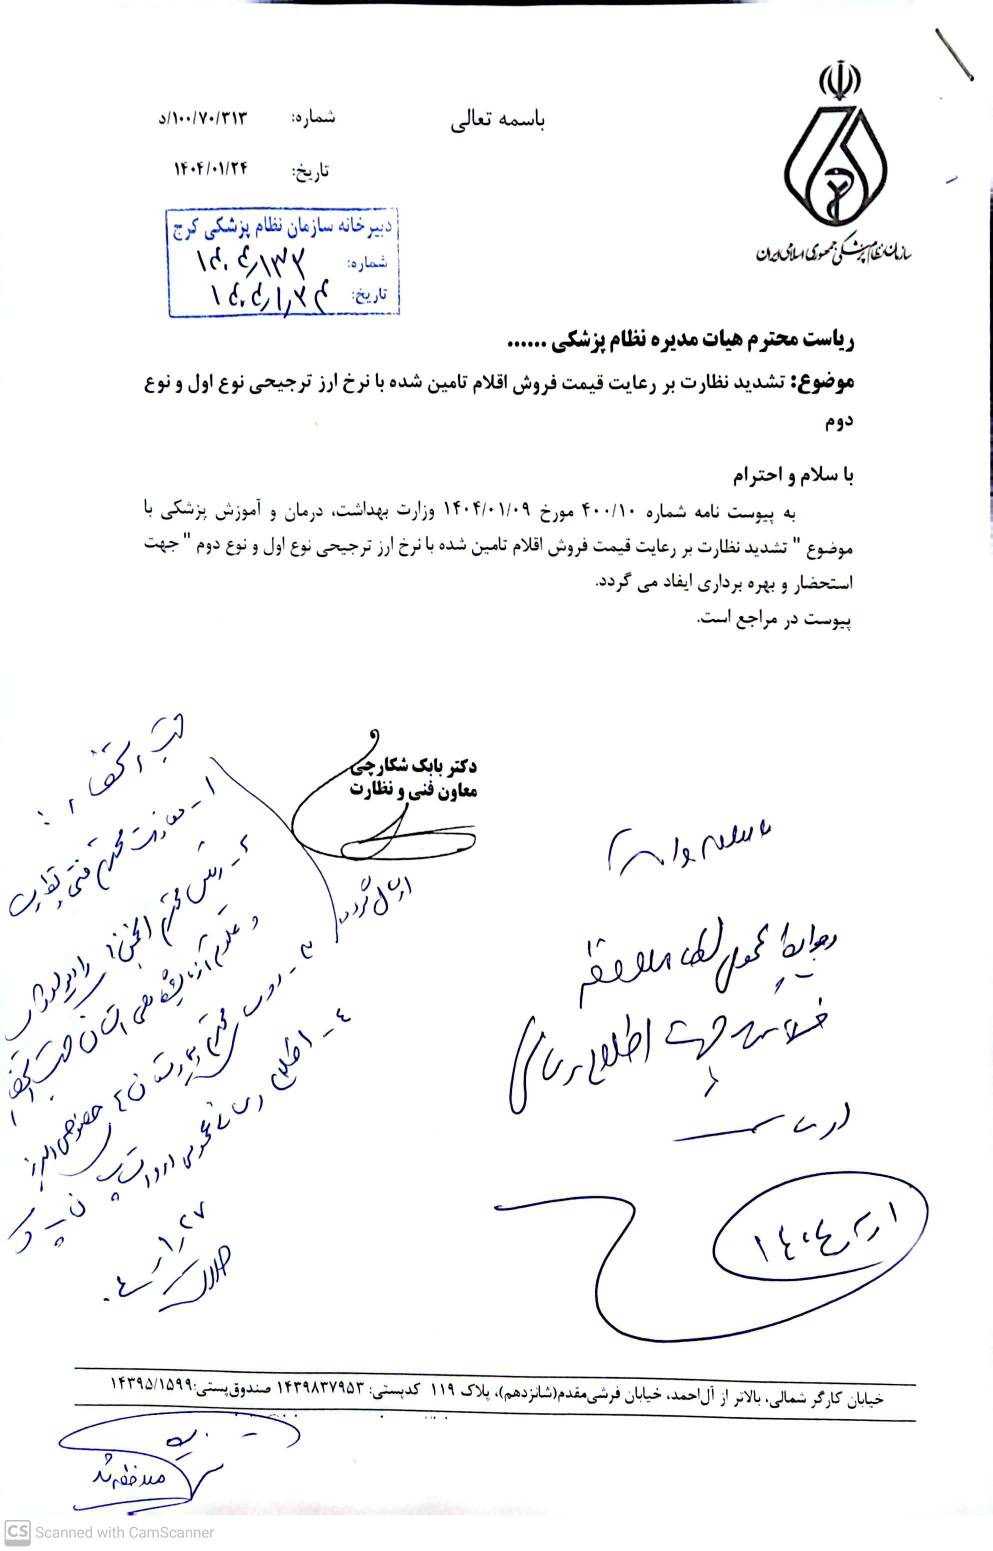 باسمه تعالی
شماره: ۳۱۳/۷۰/۱۰۰/د
تاریخ: ۱۴۰۴/۰۱/۲۴
سازمان نظام پزشکی جمهوری اسلامی ایران
دبیرخانه سازمان نظام پزشکی کرج
شماره: ۱۴۰۴/۱۳۲
تاریخ: ۱۴۰۴/۱/۲۴
ریاست محترم هیات مدیره نظام پزشکی ......
موضوع: تشدید نظارت بر رعایت قیمت فروش اقلام تامین شده با نرخ ارز ترجیحی نوع اول و نوع
دوم
با سلام و احترام
به پیوست نامه شماره ۴۰۰/۱۰ مورخ ۱۴۰۴/۰۱/۰۹ وزارت بهداشت، درمان و آموزش پزشکی با
موضوع " تشدید نظارت بر رعایت قیمت فروش اقلام تامین شده با نرخ ارز ترجیحی نوع اول و نوع دوم " جهت
استحضار و بهره برداری ایفاد می گردد.
پیوست در مراجع است.
دکتر بابک شکارچی
معاون فنی و نظارت
ارسال گردد
۱- معاونت محترم فنی و نظارت
۲- رئیس محترم انجمن رادیولوژی
و علوم آزمایشگاهی استان جهت
۳- محترم بیمارستان خصوصی البرز
۴- اطلاع رسانی عمومی
۰۴/۱/۲۷
روابط عمومی لطفا
جهت اطلاع رسانی
خیابان کارگر شمالی، بالاتر از آل‌احمد، خیابان فرشی‌مقدم(شانزدهم)، پلاک ۱۱۹ کدپستی: ۱۴۳۹۸۳۷۹۵۳ صندوق‌پستی:۱۴۳۹۵/۱۵۹۹
ملاحظه شد
CS Scanned with CamScanner